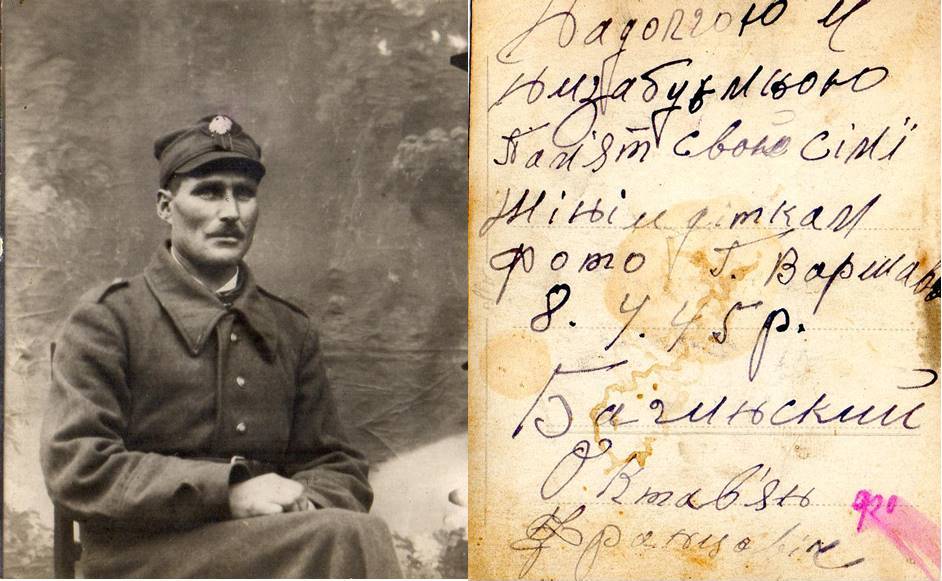 Надолгою и
низабудмиою
Памʼят своій сімі
Жіні и діткам
Фото г. Варшава
8. 4. 45 р.
Багинский
Октавʼян
Францовіч